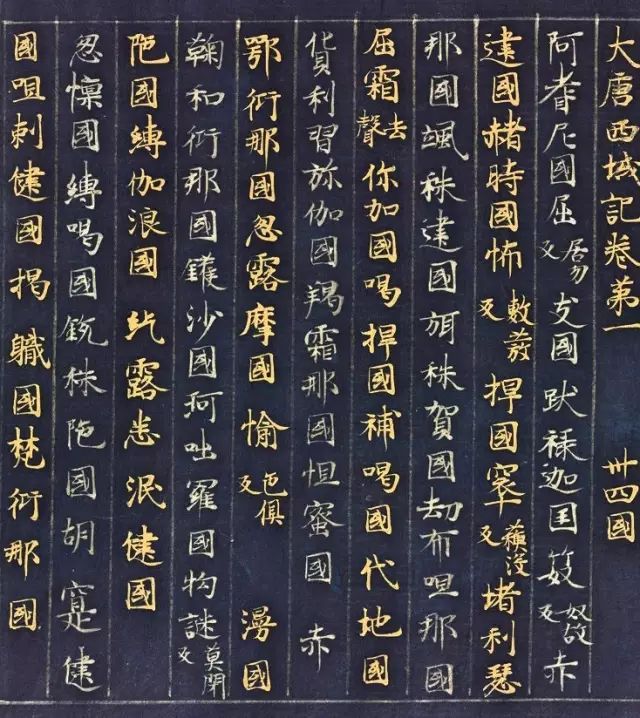 大唐西域記卷第一 卅四國
阿耆尼國屈居勿反支國跋祿迦国笯奴故反赤
建國赭時國怖敷發反捍國窣蘓没反堵利瑟
那國颯秣建國弭秣賀國劫布呾那國
屈霜去聲你加國喝捍國補喝國代地國
貨利習弥伽國羯霜那國怛蜜國 赤
鄂衍那國忽露摩國愉色俱反漫國
鞠和衍那國鑊沙國珂咄羅國拘謎莫閇反
陁國縛伽浪國 紇露悉泯健國
忽懔國縛喝國銳秣陁國胡寔健
國呾剌健國揭職國梵衍那國